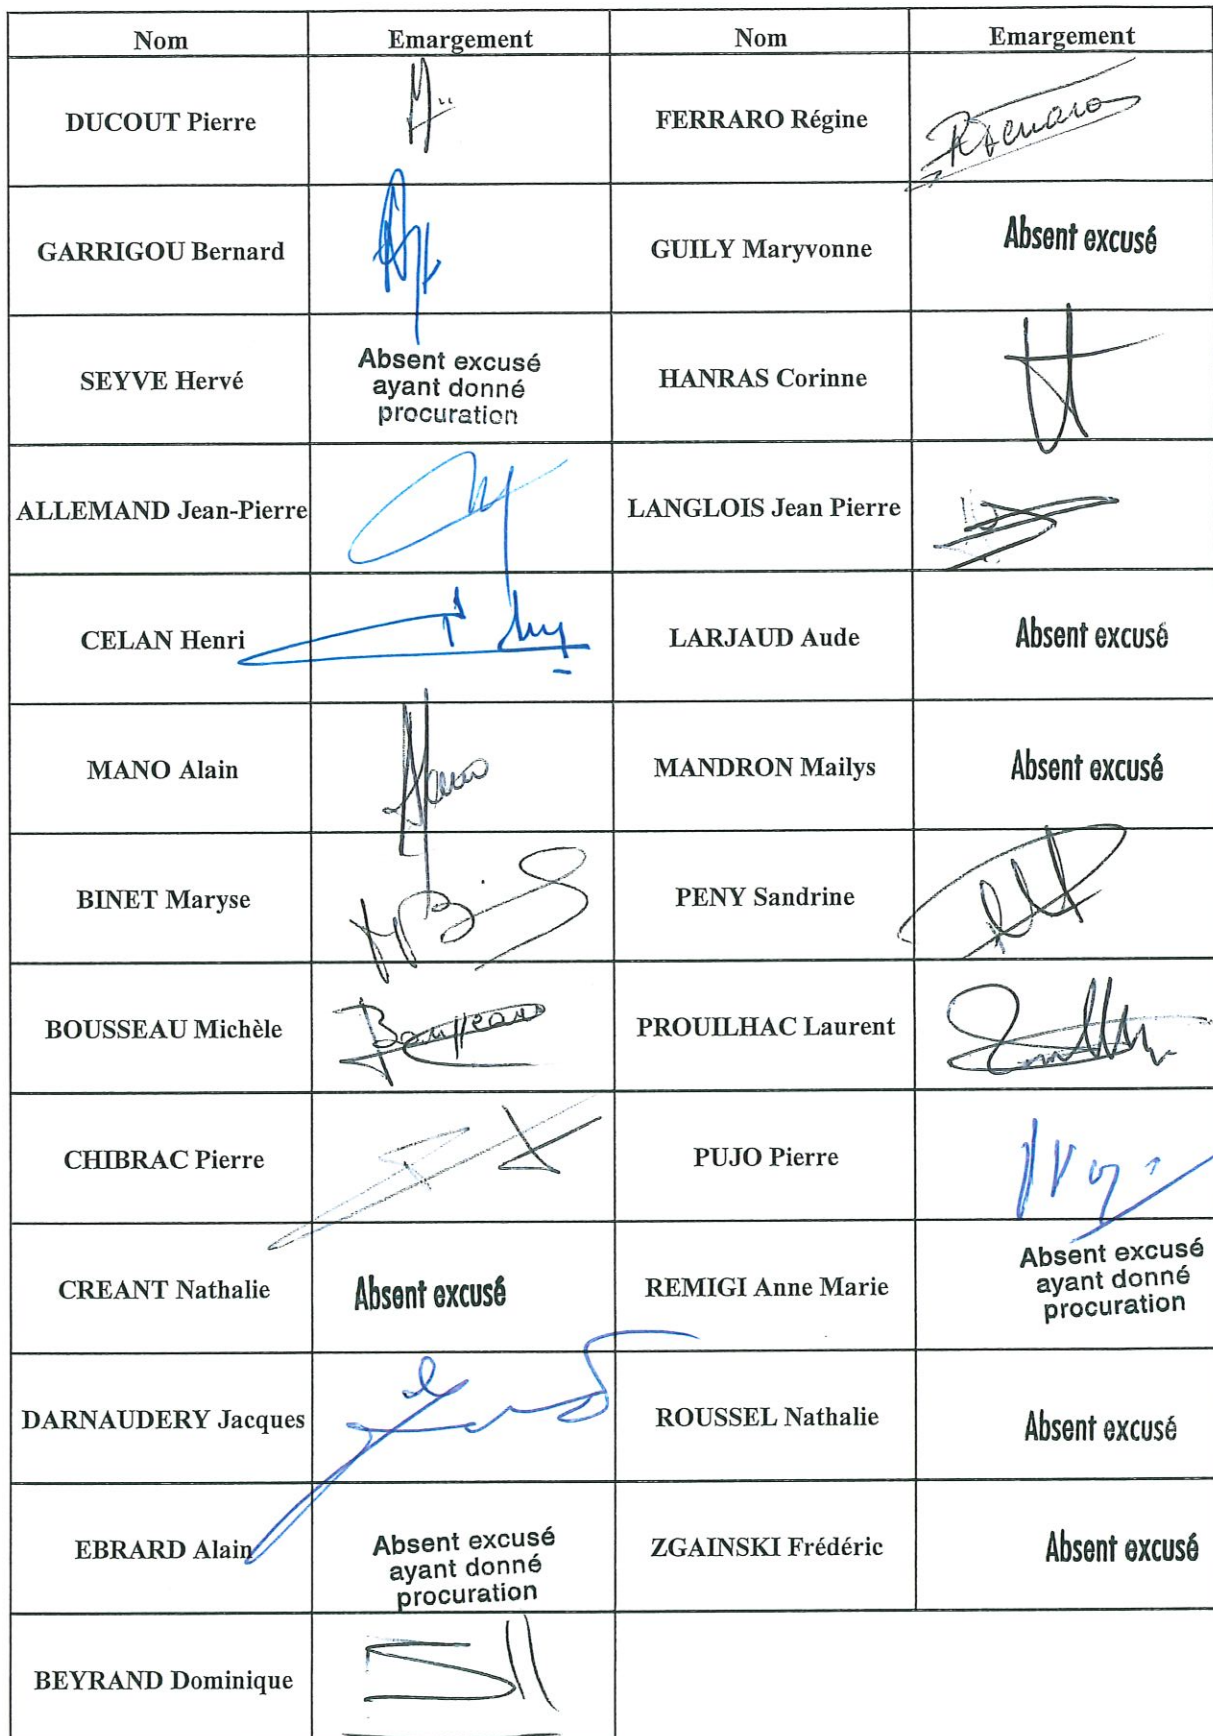 Nom Emargement Nom Emargement
DUCOUT Pierre FERRARO Régine
GARRIGOU Bernard GUILY Maryvonne Absent excusé
SEYVE Hervé Absent excusé
ayant donné
procuration HANRAS Corinne
ALLEMAND Jean-Pierre LANGLOIS Jean Pierre
CELAN Henri LARJAUD Aude Absent excusé
MANO Alain MANDRON Mailys Absent excusé
BINET Maryse PENY Sandrine
BOUSSEAU Michèle PROUILHAC Laurent
CHIBRAC Pierre PUJO Pierre
CREANT Nathalie Absent excusé REMIGI Anne Marie Absent excusé
ayant donné
procuration
DARNAUDERY Jacques ROUSSEL Nathalie Absent excusé
EBRARD Alain Absent excusé
ayant donné
procuration ZGAINSKI Frédéric Absent excusé
BEYRAND Dominique